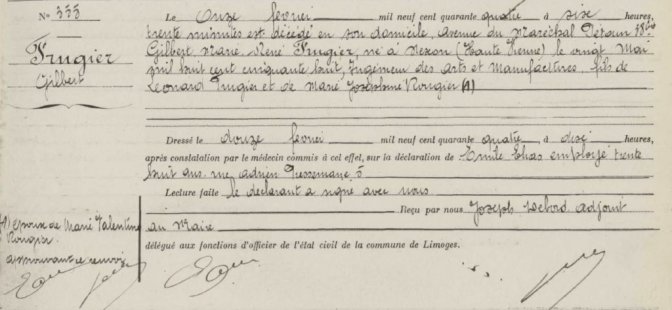 No 555
Frugier
Gilbert
Le Onze février mil neuf cent quarante quatre, à six heures,
trente minutes est décédé en son domicile, avenue du Maréchal Pétain
Gilbert Marie René Frugier, né à Nexon (Haute Vienne) le vingt Mai
mil huit cent cinquante huit, Ingénieur des arts et Manufactures, fils de
Léonard Frugier et de Marie Joséphine Rougier (1)
Dressé le douze février mil neuf cent quarante quatre, à dix heures,
après constatation par le médecin commis à cet effet, sur la déclaration de Emile employé trente
huit ans, rue Adrien Pressemane, 5
Lecture faite le déclarant a signé avec nous
Reçu par nous Joseph adjoint
au Maire
délégué aux fonctions d'officier de l'état civil de la commune de Limoges.
(1) époux de Marie Valentine
Rougier.
approuvant ce renvoi